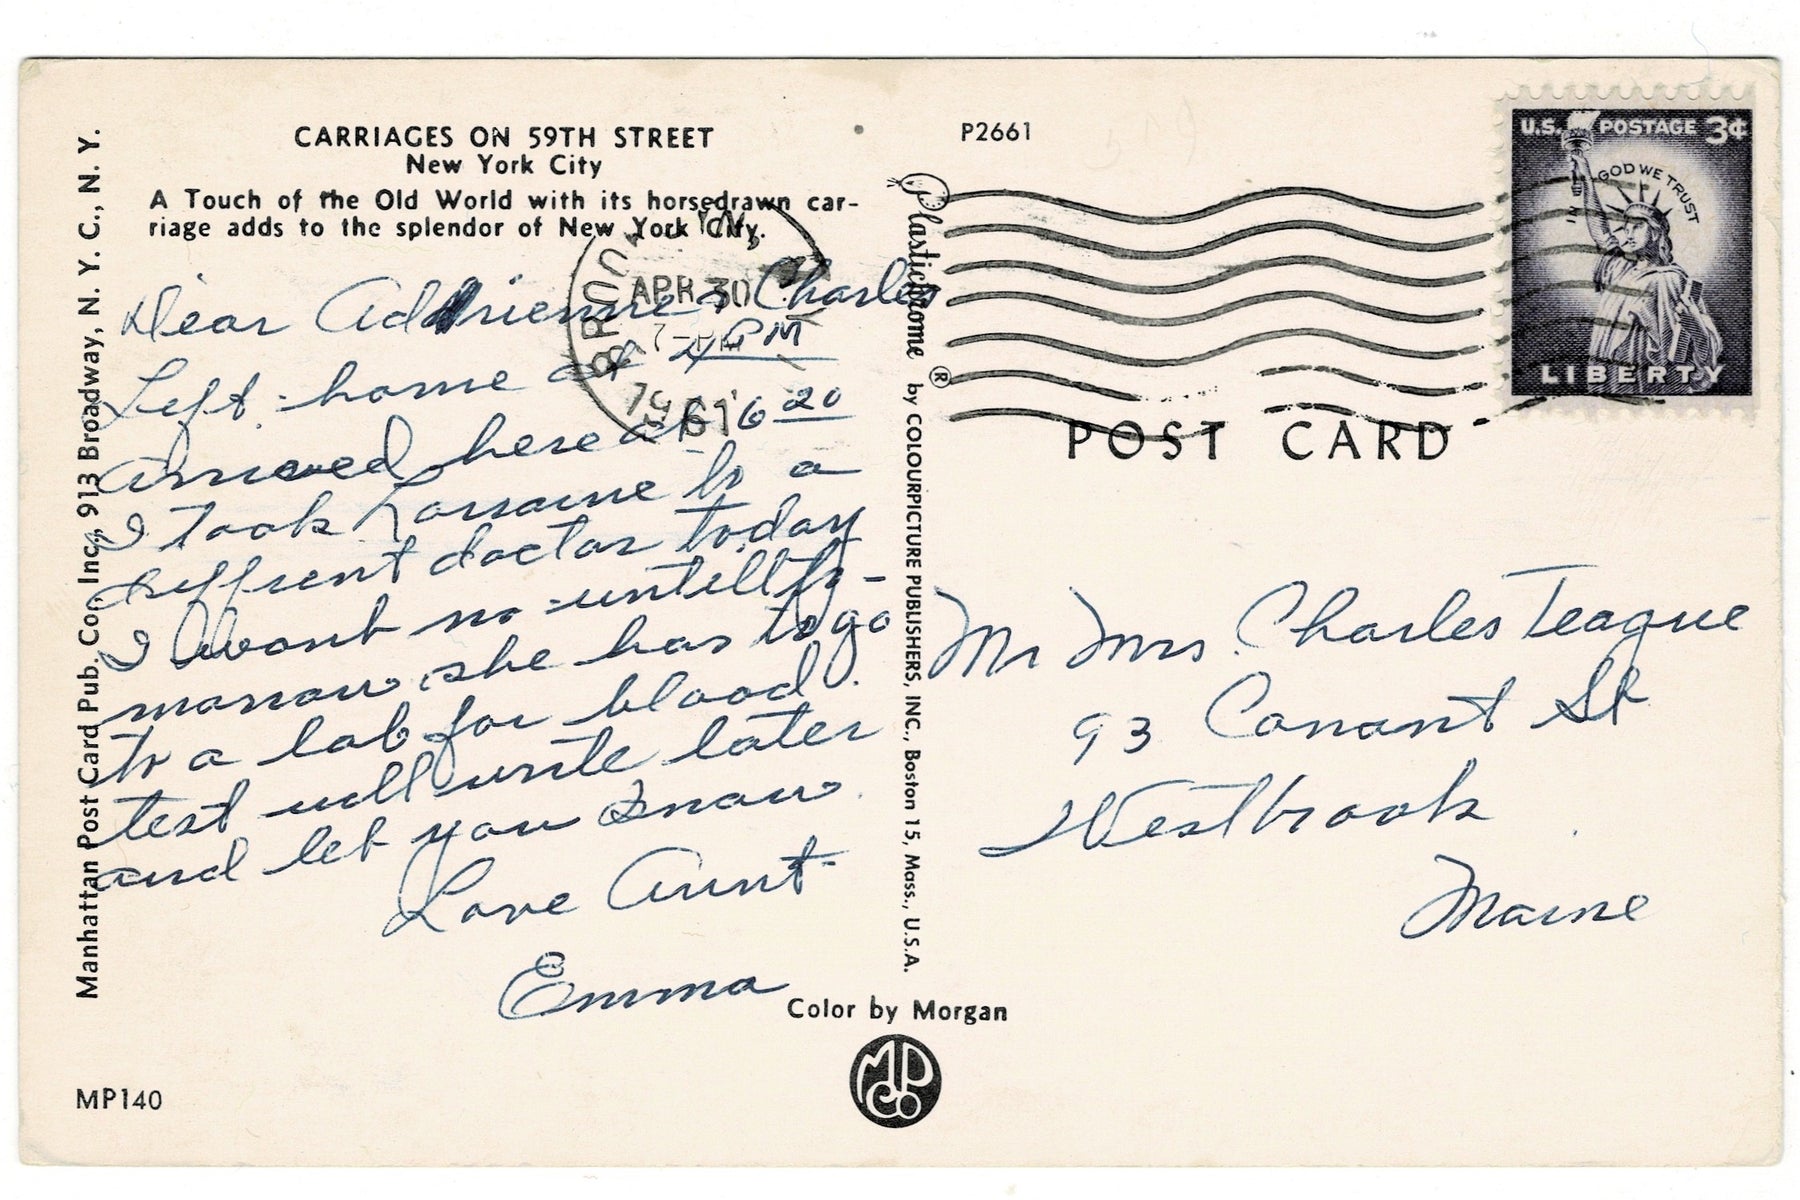 CARRIAGES ON 59TH STREET
New York City
A Touch of the Old World with its horsedrawn car-
riage adds to the splendor of New York City.
Dear Addrienne & Charles
Left home at 4 PM
arrived here at 6 20
I took Lorraine to a
diffrent doctor today
I wont no untill to-
morrow she has to go
to a lab for blood.
test will write later
and let you know.
Love Aunt
Emma
MP140
Manhattan Post Card Pub. Co., Inc., 913 Broadway, N. Y. C., N. Y.
BRONX
N.Y.
APR 30
7-PM
1961
P2661
Plastichrome ® by COLOURPICTURE PUBLISHERS, INC., Boston 15, Mass., U.S.A.
Color by Morgan
MPCo
U.S. POSTAGE 3¢
IN GOD WE TRUST
LIBERTY
POST CARD
Mr Mrs. Charles Teague
93 Conant St
Westbrook
Maine